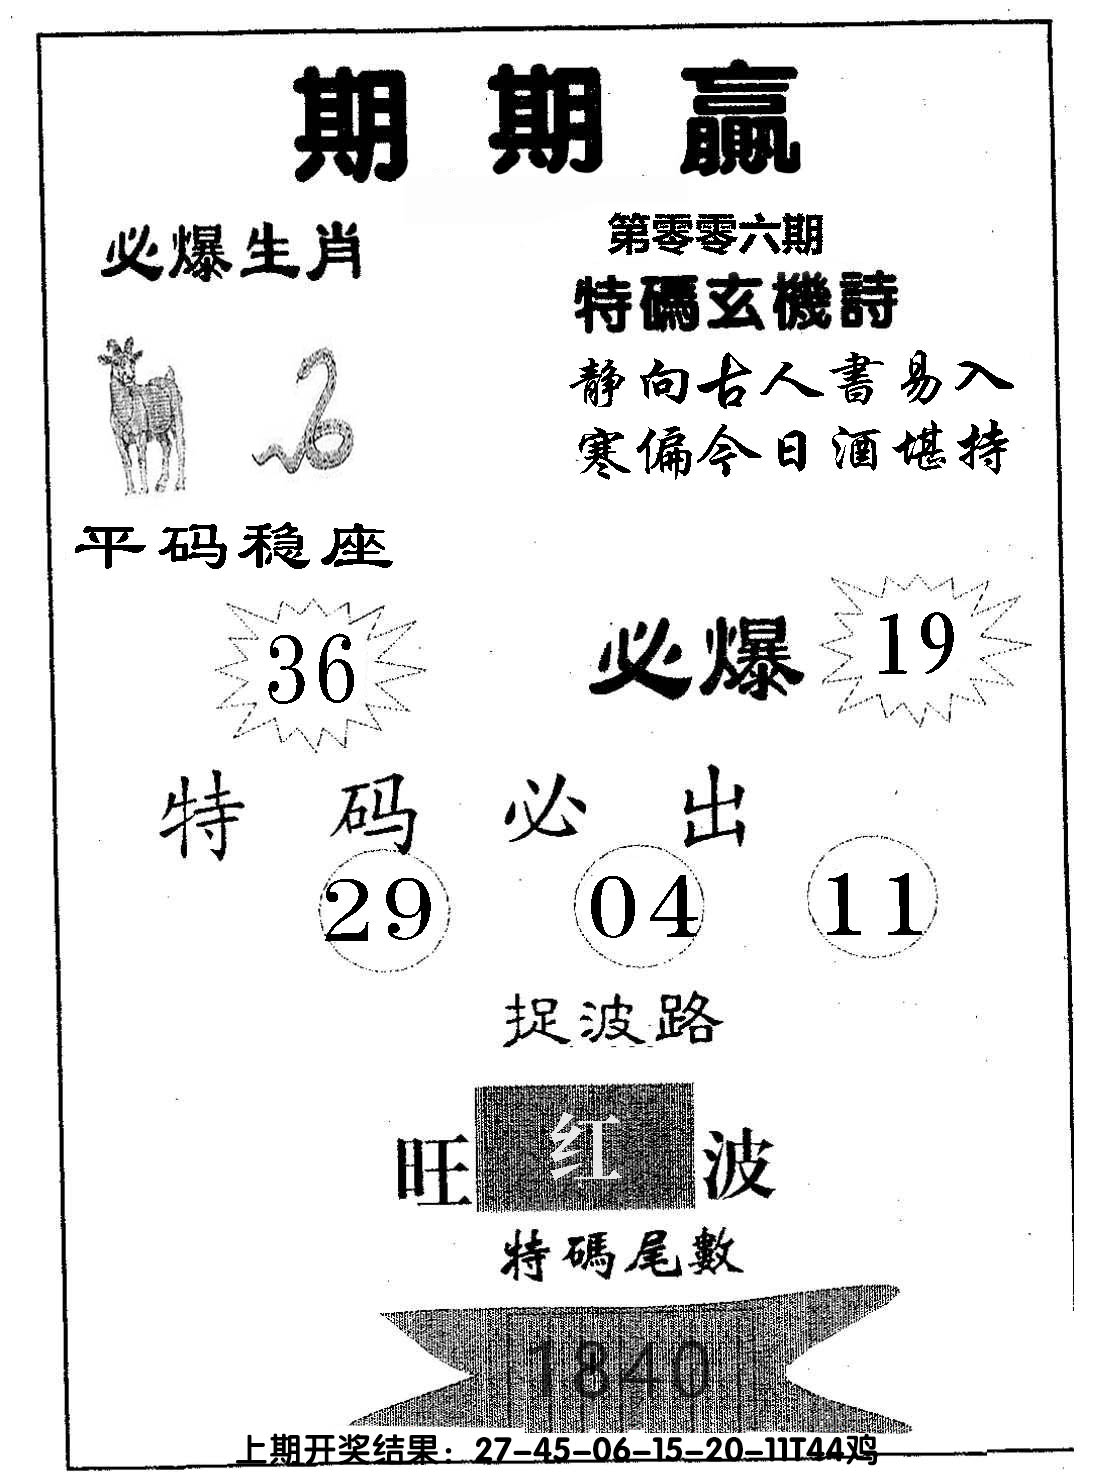 期期赢
必爆生肖
第零零六期
特碼玄機詩
静向古人書易入
寒偏今日酒堪持
平码稳座
36
必爆
19
特码必出
29 04 11
捉波路
旺红波
特碼尾數
1840
上期开奖结果：27-45-06-15-20-11T44鸡